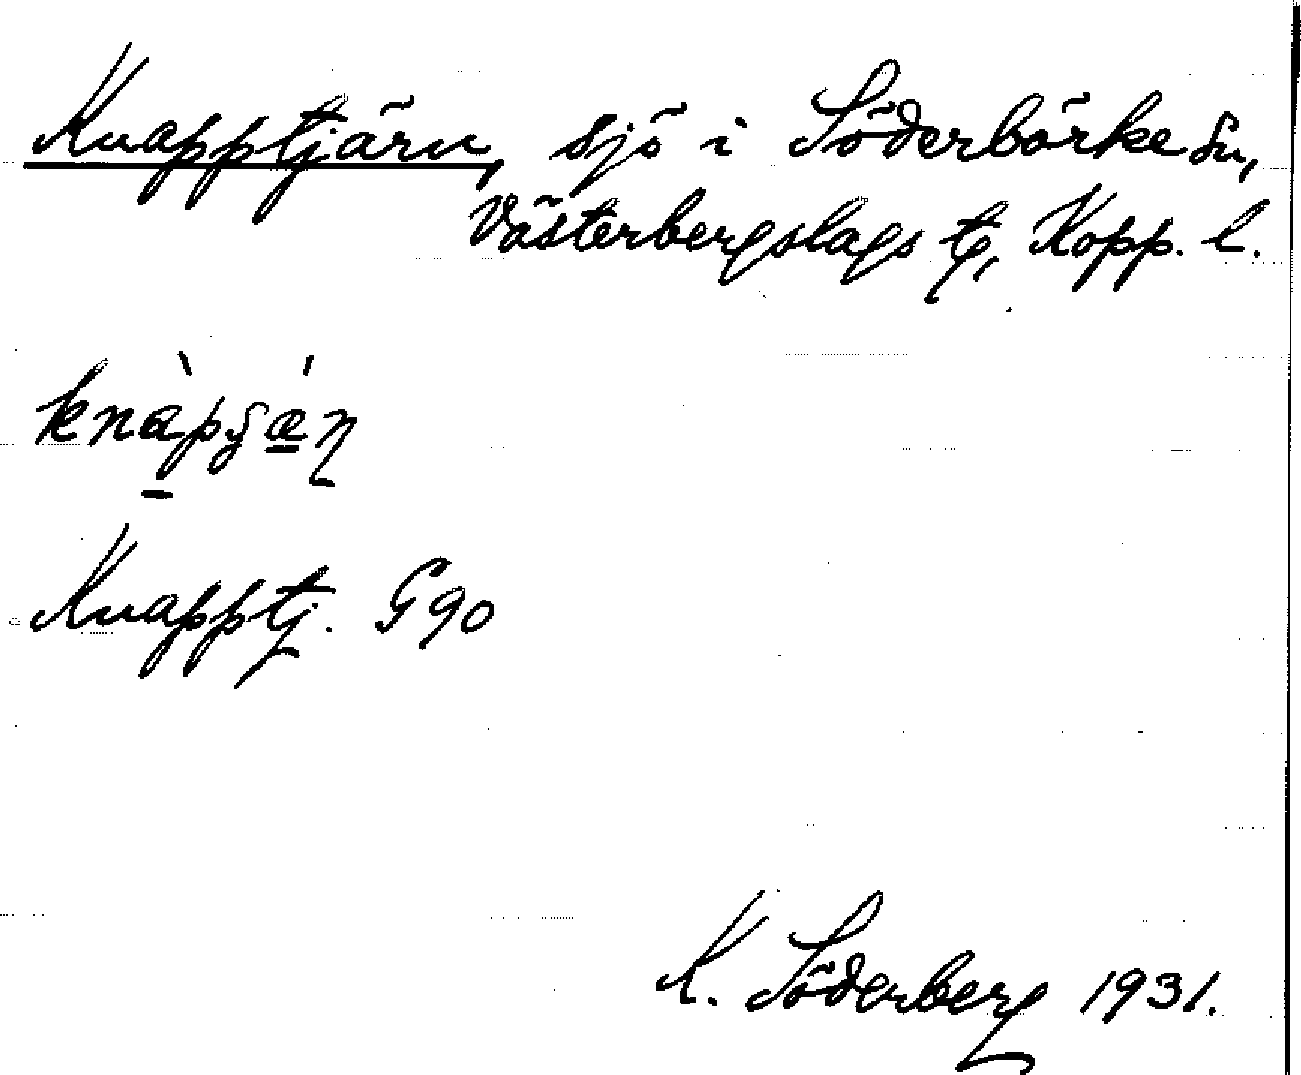 Knapptjärn, sjö i Söderbärke sn,
Västerbergslags tg, Kopp. l.
Knapptj. G90
K. Söderberg 1931.